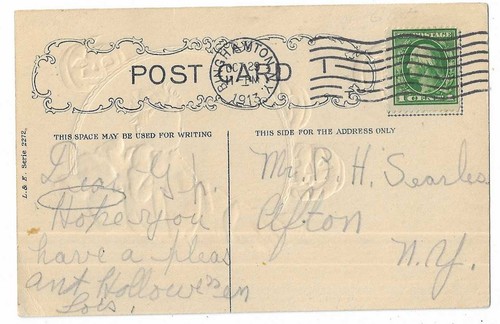 BINGHAMTON, N.Y.
OCT 29
1913
POST CARD
1 CENT
THIS SPACE MAY BE USED FOR WRITING
THIS SIDE FOR THE ADDRESS ONLY
L. & E. Serie 2272.
Dear G
Hope you
have a pleas
ant Hollowe'en
Lois.
Mr. B. H. Searles
Afton
N.Y.